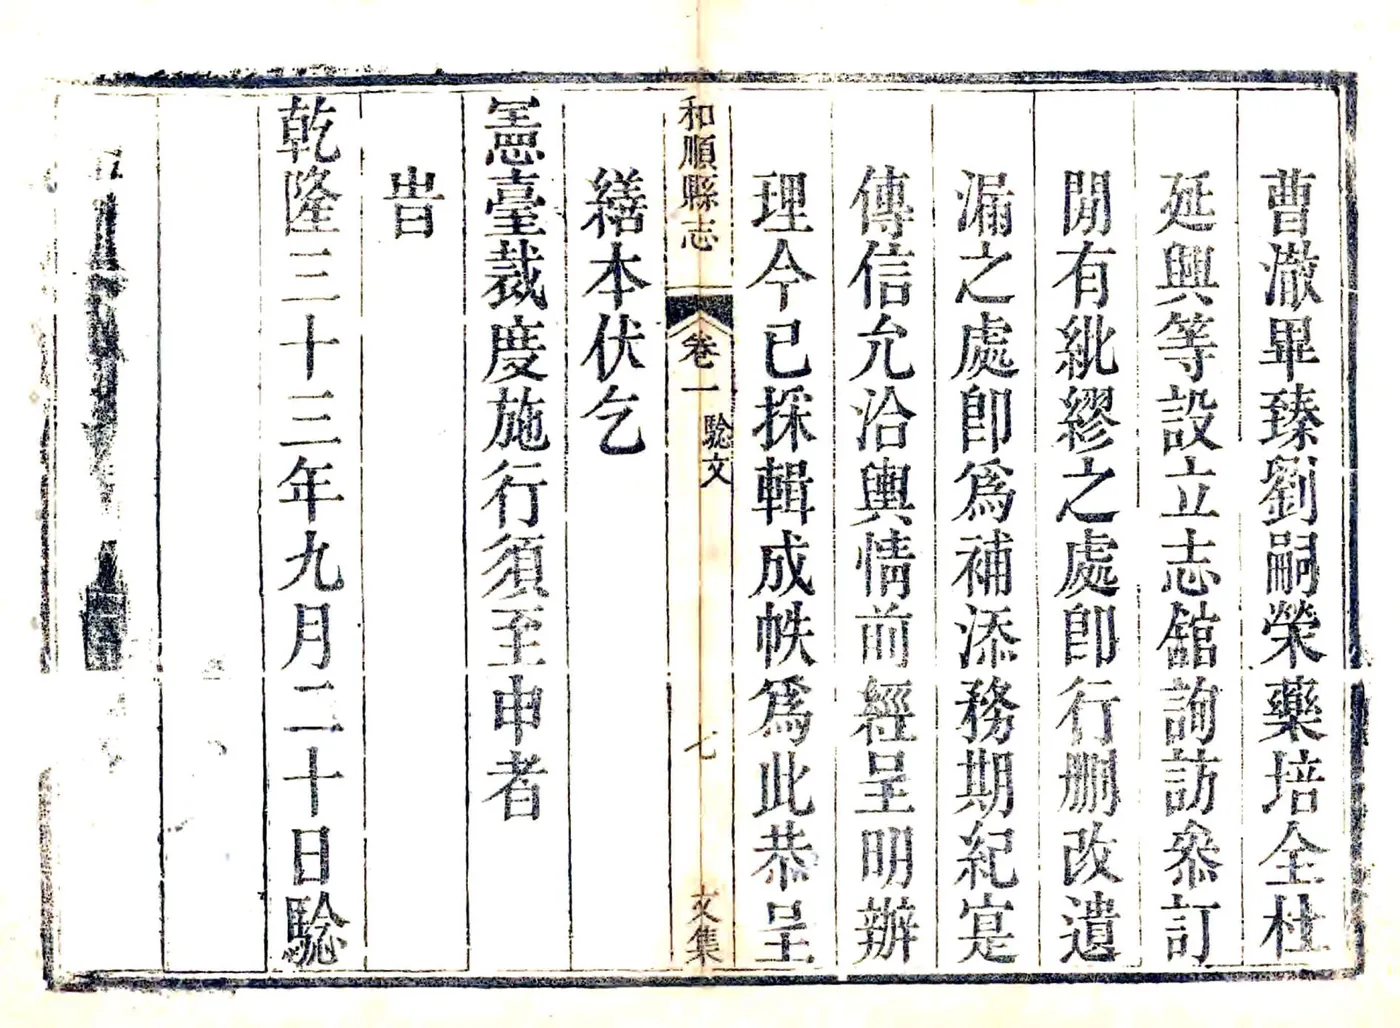 曹澈畢臻劉嗣榮藥培全杜
延興等設立志舘詢訪叅訂
閒有紕繆之處卽行删改遺
漏之處卽爲補添務期紀寔
傳信允洽輿情前經呈明辦
理今已採輯成帙爲此恭呈
和順縣志
卷一
驗文
七
文集
繕本伏乞
憲臺裁度施行須至申者
旹
乾隆三十三年九月二十日騐